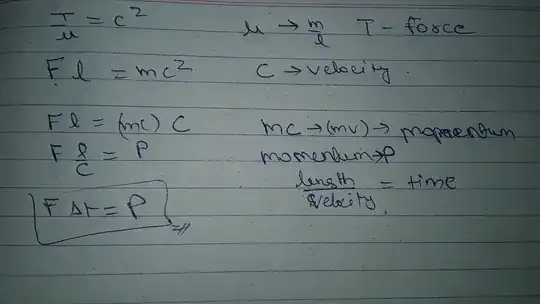 T/μ = c²   μ → m/l   T - force
F l = mc²   C → velocity.
F l = (mc) C   mc → (mv) → momentum
F l/C = P   momentum → P
length/velocity = time
F Δt = P